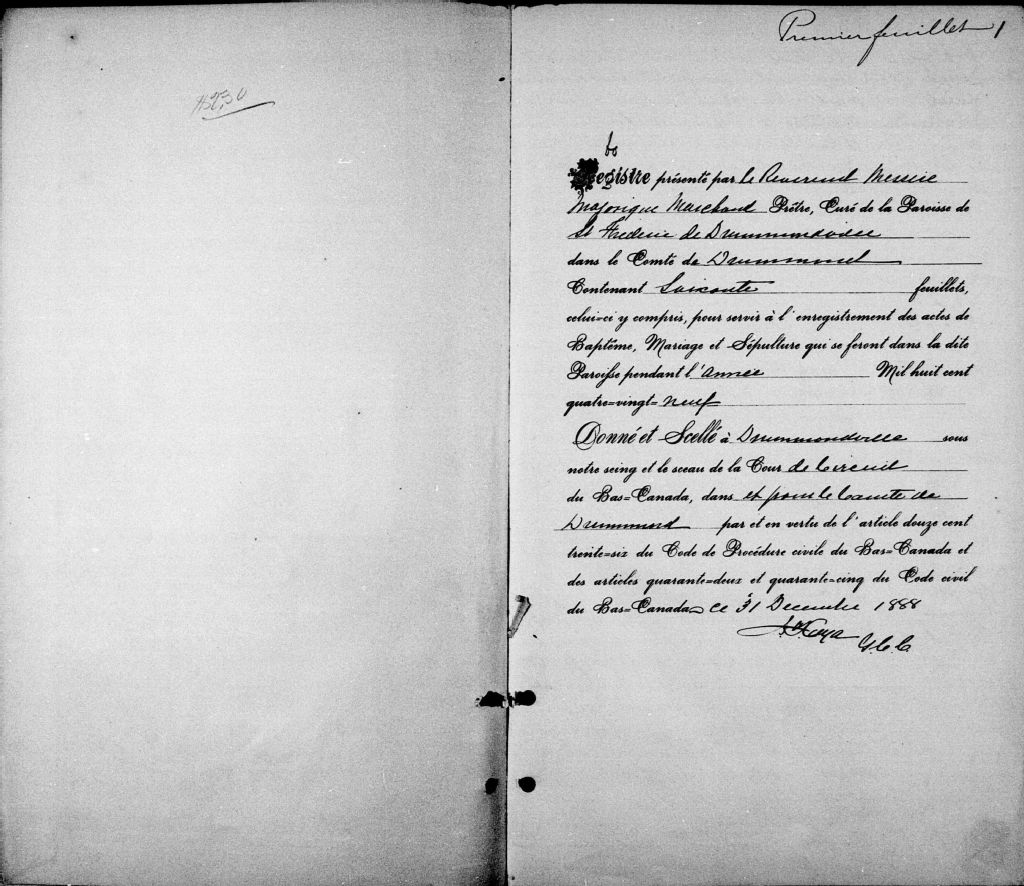 Premier feuillet 1
60
Registre présenté par le Reverend Messire
Majorique Marchand Prêtre, Curé de la Paroisse de
St Frederic de Drummondville
dans le Comté de Drummond
Contenant Soixante feuillets,
celui=ci y compris, pour servir à l'enregistrement des actes de
Baptême, Mariage et Sépulture qui se feront dans la dite
Paroisse pendant l'année Mil huit cent
quatre=vingt=neuf
Donné et Scellé à Drummondville sous
notre seing et le sceau de la Cour de Circuit
du Bas=Canada, dans et pour le Comté de
Drummond par et en vertu de l'article douze cent
trente=six du Code de Procédure civile du Bas=Canada et
des articles quarante=deux et quarante=cinq du Code civil
du Bas=Canada, ce 31 Decembre 1888
G.C.C.